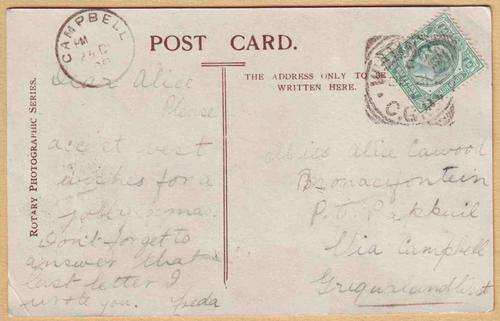 CAMPBELL
PM
POST CARD.
THE ADDRESS ONLY TO BE
WRITTEN HERE.
C.G.H.
ROTARY PHOTOGRAPHIC SERIES.
Dear Alice
Please
accept best
wishes for a
Don't forget to
answer that
last letter I
wrote you.
Miss Alice Cawood
P.O.
Via Campbell
Griqualand West